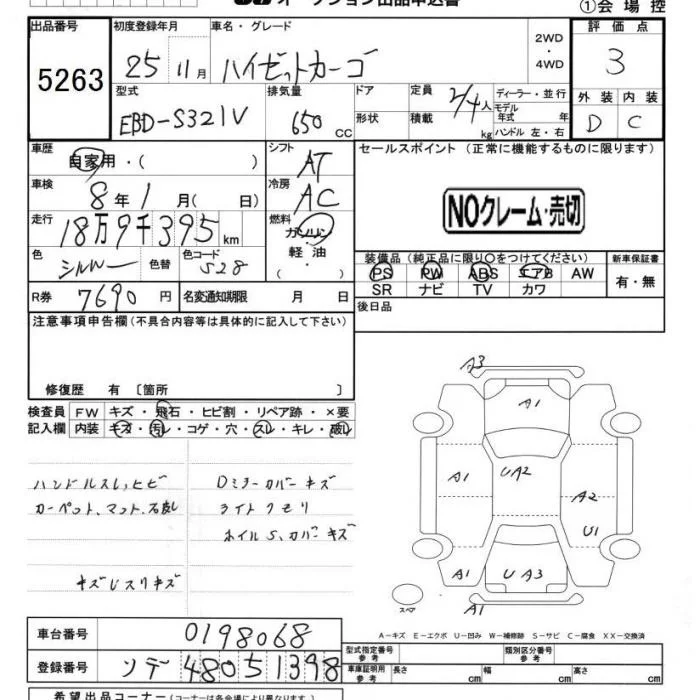 オークション出品申込書
①会場控
出品番号
5263
初度登録年月
25 11月
車名・グレード
ハイゼットカーゴ
2WD
・
4WD
評価点
3
型式
EBD-S321V
排気量
650 cc
ドア
形状
定員 2/4人
積載 kg
ディーラー・並行
モデル
年式 年
ハンドル 左・右
外装 内装
D C
車歴
自家用・( )
シフト
AT
セールスポイント (正常に機能するものに限ります)
NOクレーム・売切
車検
8年1月( 日)
冷房
AC
走行
18万9千395km
燃料
ガソリン
軽・油
色
シルバー
色替
色コード
S28
装備品(純正品に限り○をつけてください)
PS PW ABS エアB AW
SR ナビ TV カワ
新車保証書
有・無
R券 7690円
名変通知期限 月 日
後日品
注意事項申告欄(不具合内容等は具体的に記入して下さい)
修復歴 有 〔箇所 〕
検査員
記入欄
FW キズ・飛石・ヒビ割・リペア跡・×要
内装 キズ・汚レ・コゲ・穴・スレ・キレ・破レ
ハンドルスレ、ヒビ
カーペット、マット、石良し
キズUスリキズ
Dミラーカバーキズ
ライトクモリ
ホイルS、カバーキズ
A3
A1
A1
UA2
A2
U1
A1
UA3
A1
スペア
A-キズ E-エクボ U-凹み W-補修跡 S-サビ C-腐食 XX-交換済
車台番号
0198068
登録番号
ソデ 48051398
型式指定番号
参考
類別区分番号
参考
車庫証明用
参考
長さ cm
幅 cm
高さ cm
希望出品コーナー(コーナーは各会場により異なります。)